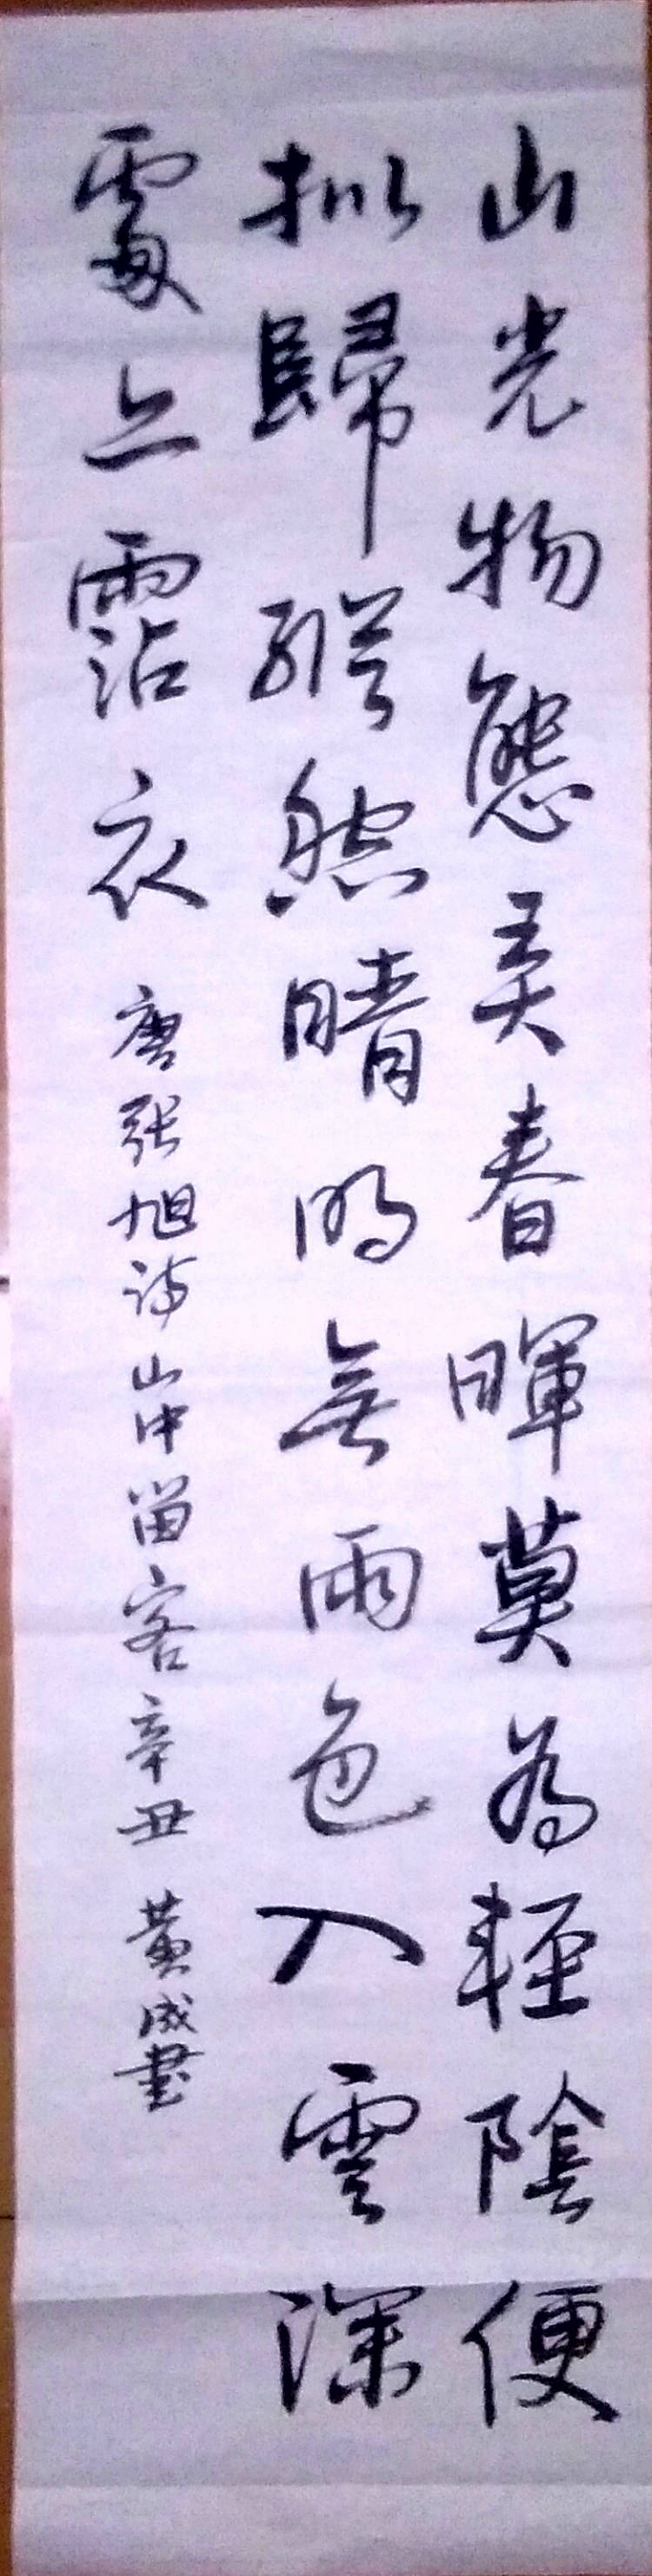 山光物態美春暉莫為輕陰便
擬歸縱然晴明無雨色入雲深
處亦霑衣 唐張旭詩山中留客辛丑 黃成書